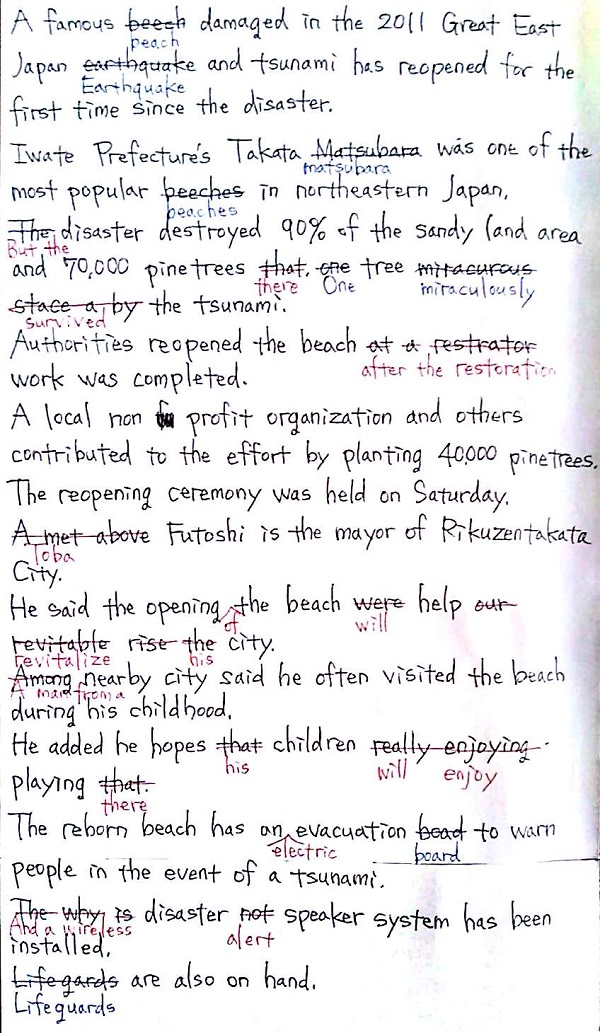 A famous beech damaged in the 2011 Great East
beach
Japan earthquake and tsunami has reopened for the
Earthquake
first time since the disaster.
Iwate Prefecture's Takata Matsubara was one of the
matsubara
most popular beeches in northeastern Japan,
beaches
The disaster destroyed 90% of the sandy land area
But the
and 70,000 pinetrees that, one tree miracurous
there One miraculously
stace a by the tsunami.
survived
Authorities reopened the beach at a restrator
after the restoration
work was completed.
A local non profit organization and others
contributed to the effort by planting 40,000 pinetrees.
The reopening ceremony was held on Saturday.
A met above Futoshi is the mayor of Rikuzentakata
Toba
City.
He said the opening the beach were help our
of will
revitable rise the city.
revitalize his
Among nearby city said he often visited the beach
A man from a
during his childhood.
He added he hopes that children really enjoying
his will enjoy
playing that.
there
The reborn beach has an evacuation boad to warn
electric board
people in the event of a tsunami.
The why is disaster not speaker system has been
And a wireless alert
installed.
Lifegards are also on hand.
Lifeguards